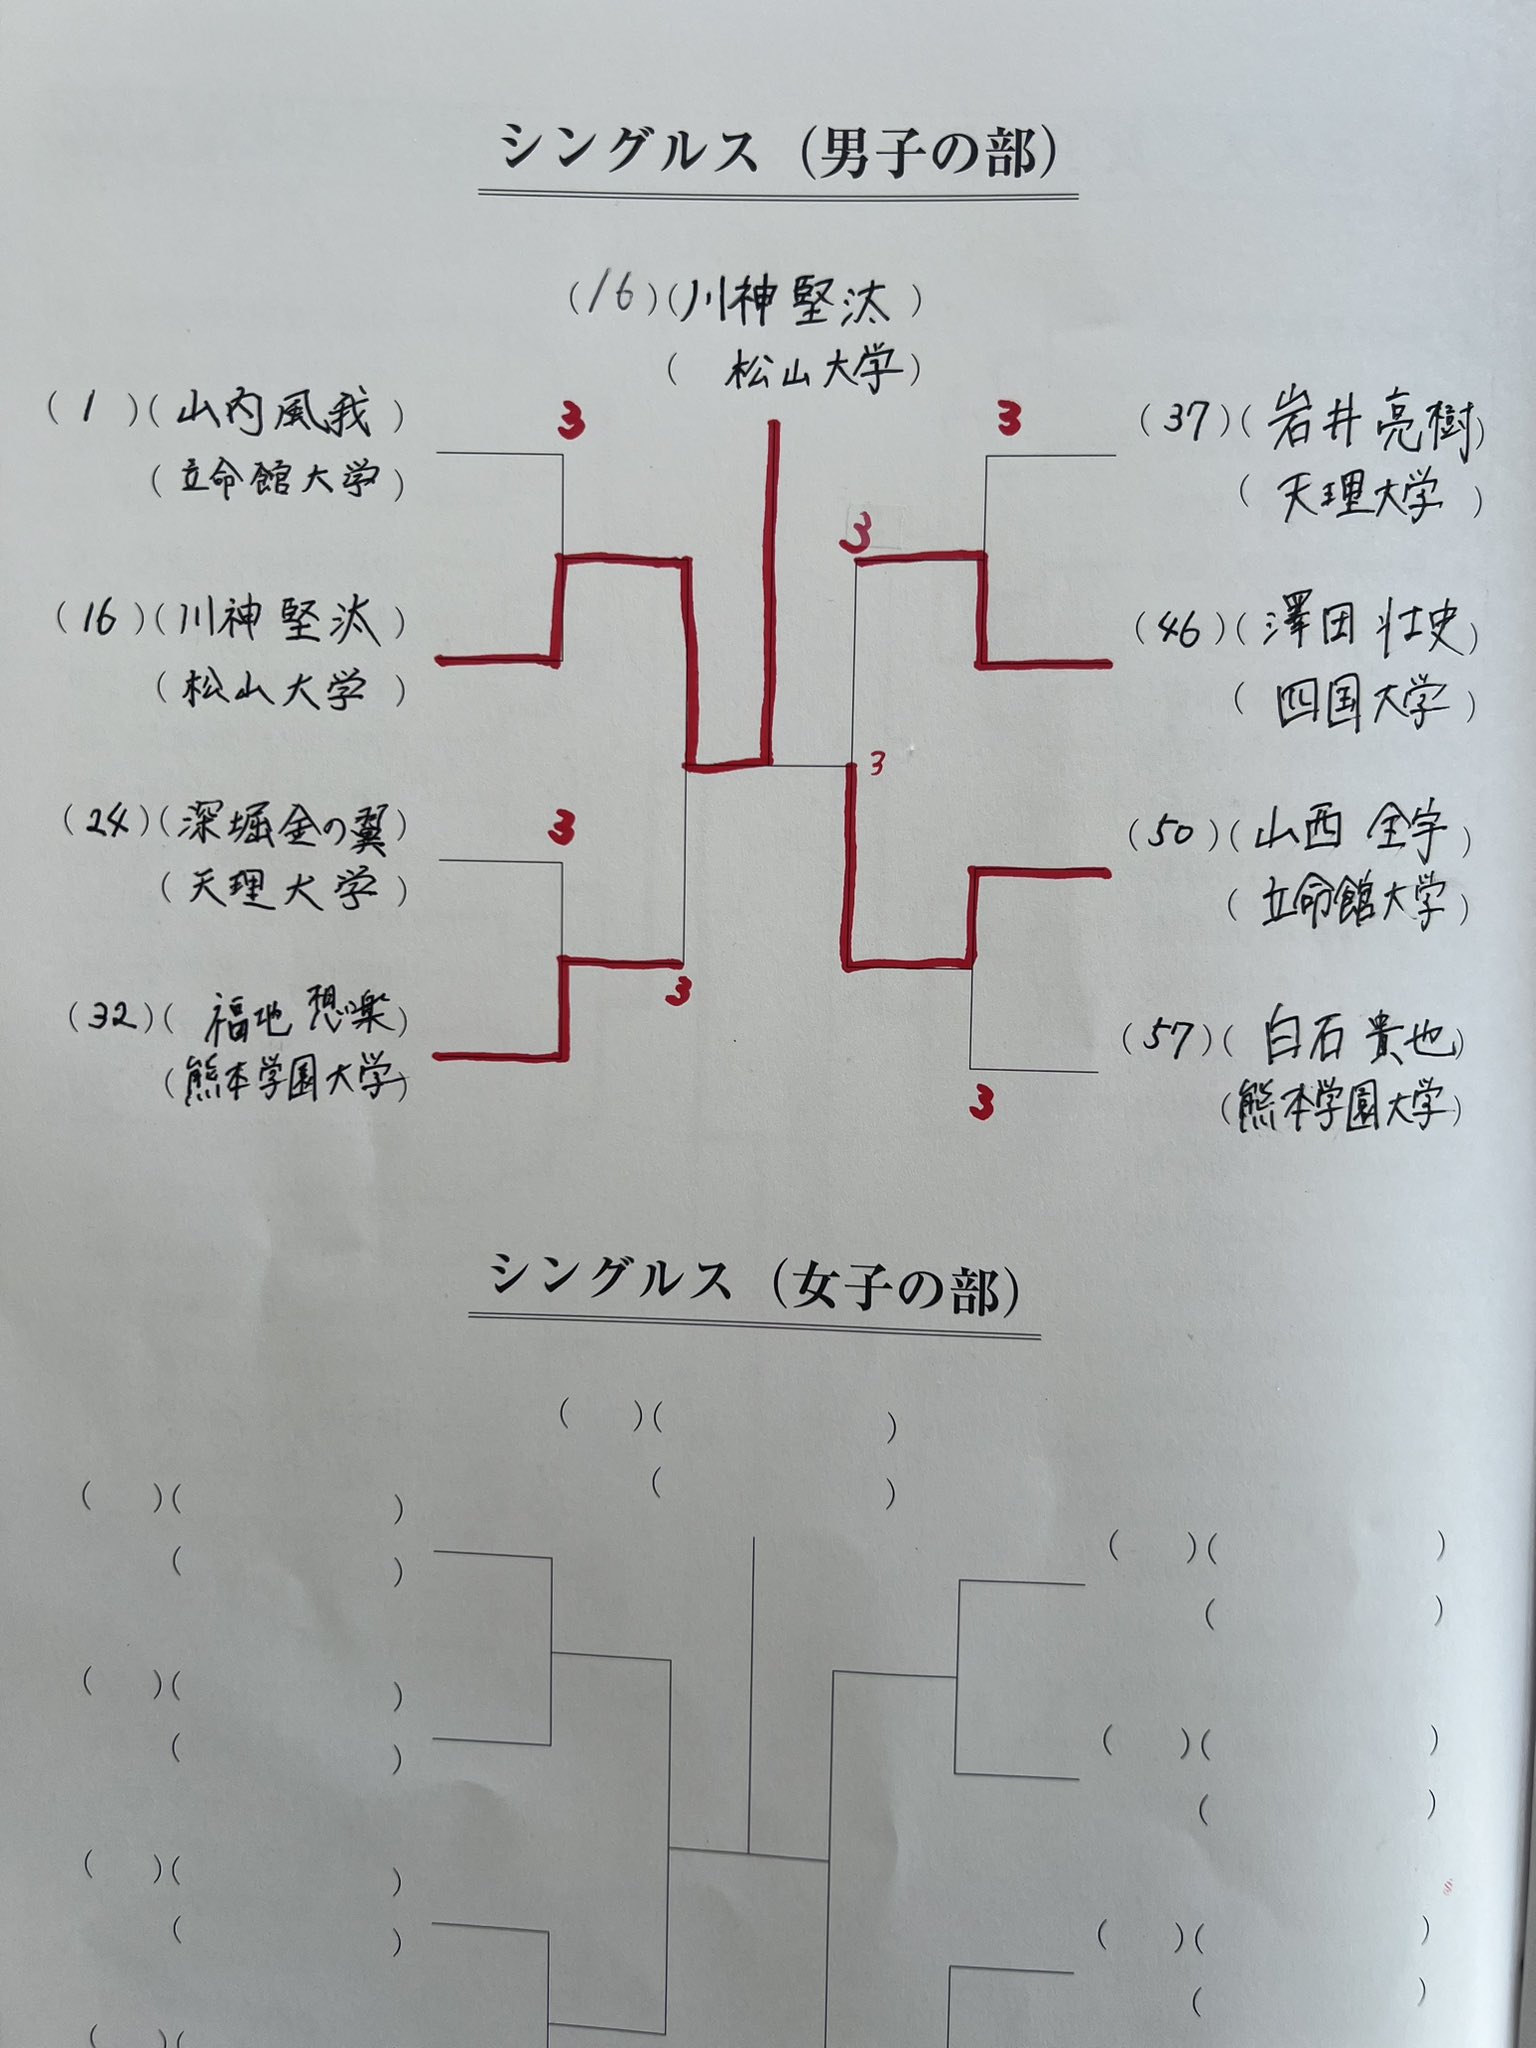 シングルス（男子の部）
（16）（川神堅汰）
（松山大学）
（1）（山内風我）
（立命館大学）
3
3
（37）（岩井亮樹）
（天理大学）
3
（16）（川神堅汰）
（松山大学）
（46）（澤田壮史）
（四国大学）
3
（24）（深堀金の翼）
（天理大学）
3
（50）（山西全宇）
（立命館大学）
（32）（福地想楽）
（熊本学園大学）
3
（57）（白石貴也）
（熊本学園大学）
3
シングルス（女子の部）
（　）（　）
（　）
（　）（　）
（　）
（　）（　）
（　）
（　）（　）
（　）
（　）（　）
（　）
（　）（　）
（　）
（　）（　）
（　）
（　）（